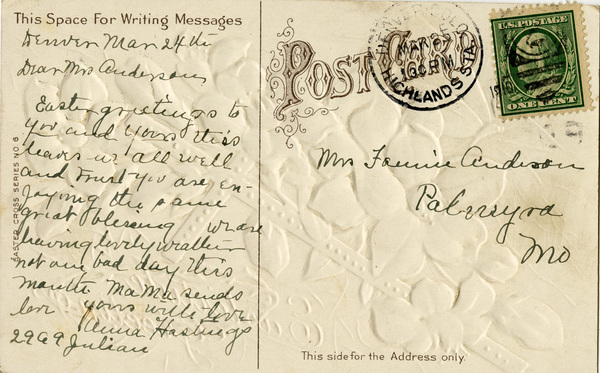 This Space For Writing Messages
Denver Mar 24th
Dear Mrs Anderson
Easter greetings to
you and yours this
leaves us all well
and trust you are en-
joying the same
great blessing we are
having lovely weather
not one bad day this
month MaMa sends
love yours with love
Anna Hastings
2969 Julian
EASTER CROSS SERIES NO. 6
POST CARD
DENVER COLO
MAR 25
PM
HIGHLANDS STA.
U.S. POSTAGE
ONE CENT
Mrs Fannie Anderson
Palmyra
Mo
This side for the Address only.